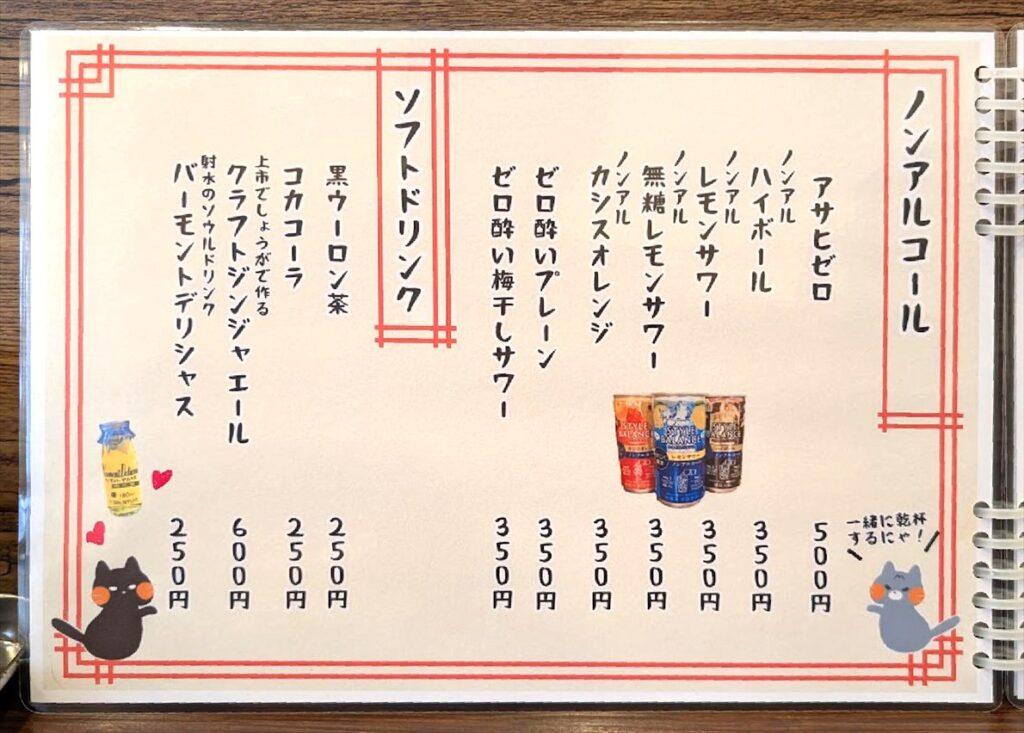 ノンアルコール
アサヒゼロ
500円
ノンアル
ハイボール
350円
ノンアル
レモンサワー
350円
ノンアル
無糖レモンサワー
350円
ノンアル
カシスオレンジ
350円
ゼロ酔いプレーン
350円
ゼロ酔い梅干しサワー
350円
STYLE
BALANCE
STYLE
BALANCE
レモンサワー
ノンアルコール
STYLE
BALANCE
一緒に乾杯
するにゃ！
ソフトドリンク
黒ウーロン茶
250円
コカコーラ
250円
上市でしょうがで作る
クラフトジンジャエール
600円
射水のソウルドリンク
バーモントデリシャス
250円